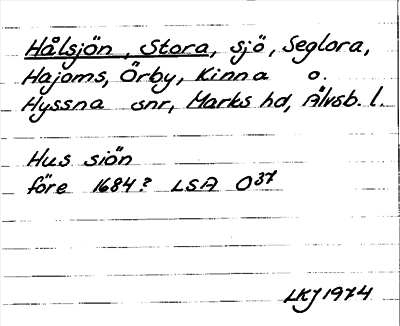 Hålsjön, Stora, sjö, Seglora,
Hajoms, Örby, Kinna o.
Hyssna snr, Marks hd, Älvsb. l.
Hus siön
före 1684? LSA O37
LKJ 1974